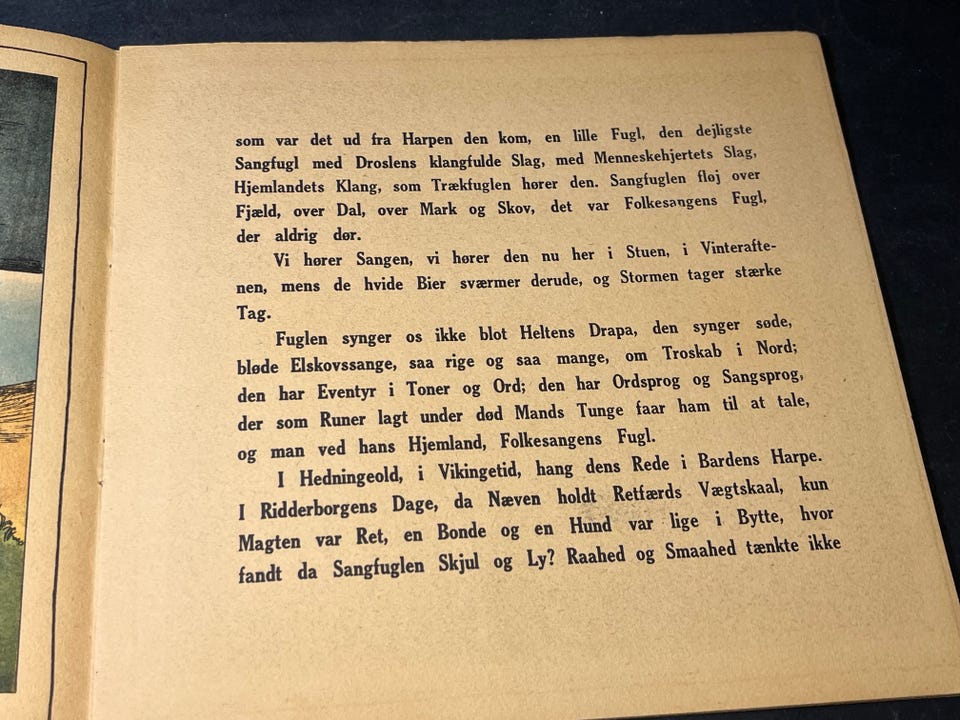 som var det ud fra Harpen den kom, en lille Fugl, den dejligste
Sangfugl med Droslens klangfulde Slag, med Menneskehjertets Slag,
Hjemlandets Klang, som Trækfuglen hører den. Sangfuglen fløj over
Fjæld, over Dal, over Mark og Skov, det var Folkesangens Fugl,
der aldrig dør.
Vi hører Sangen, vi hører den nu her i Stuen, i Vinterafte-
nen, mens de hvide Bier sværmer derude, og Stormen tager stærke
Tag.
Fuglen synger os ikke blot Heltens Drapa, den synger søde,
bløde Elskovssange, saa rige og saa mange, om Troskab i Nord;
den har Eventyr i Toner og Ord; den har Ordsprog og Sangsprog,
der som Runer lagt under død Mands Tunge faar ham til at tale,
og man ved hans Hjemland, Folkesangens Fugl.
I Hedningeold, i Vikingetid, hang dens Rede i Bardens Harpe.
I Ridderborgens Dage, da Næven holdt Retfærds Vægtskaal, kun
Magten var Ret, en Bonde og en Hund var lige i Bytte, hvor
fandt da Sangfuglen Skjul og Ly? Raahed og Smaahed tænkte ikke